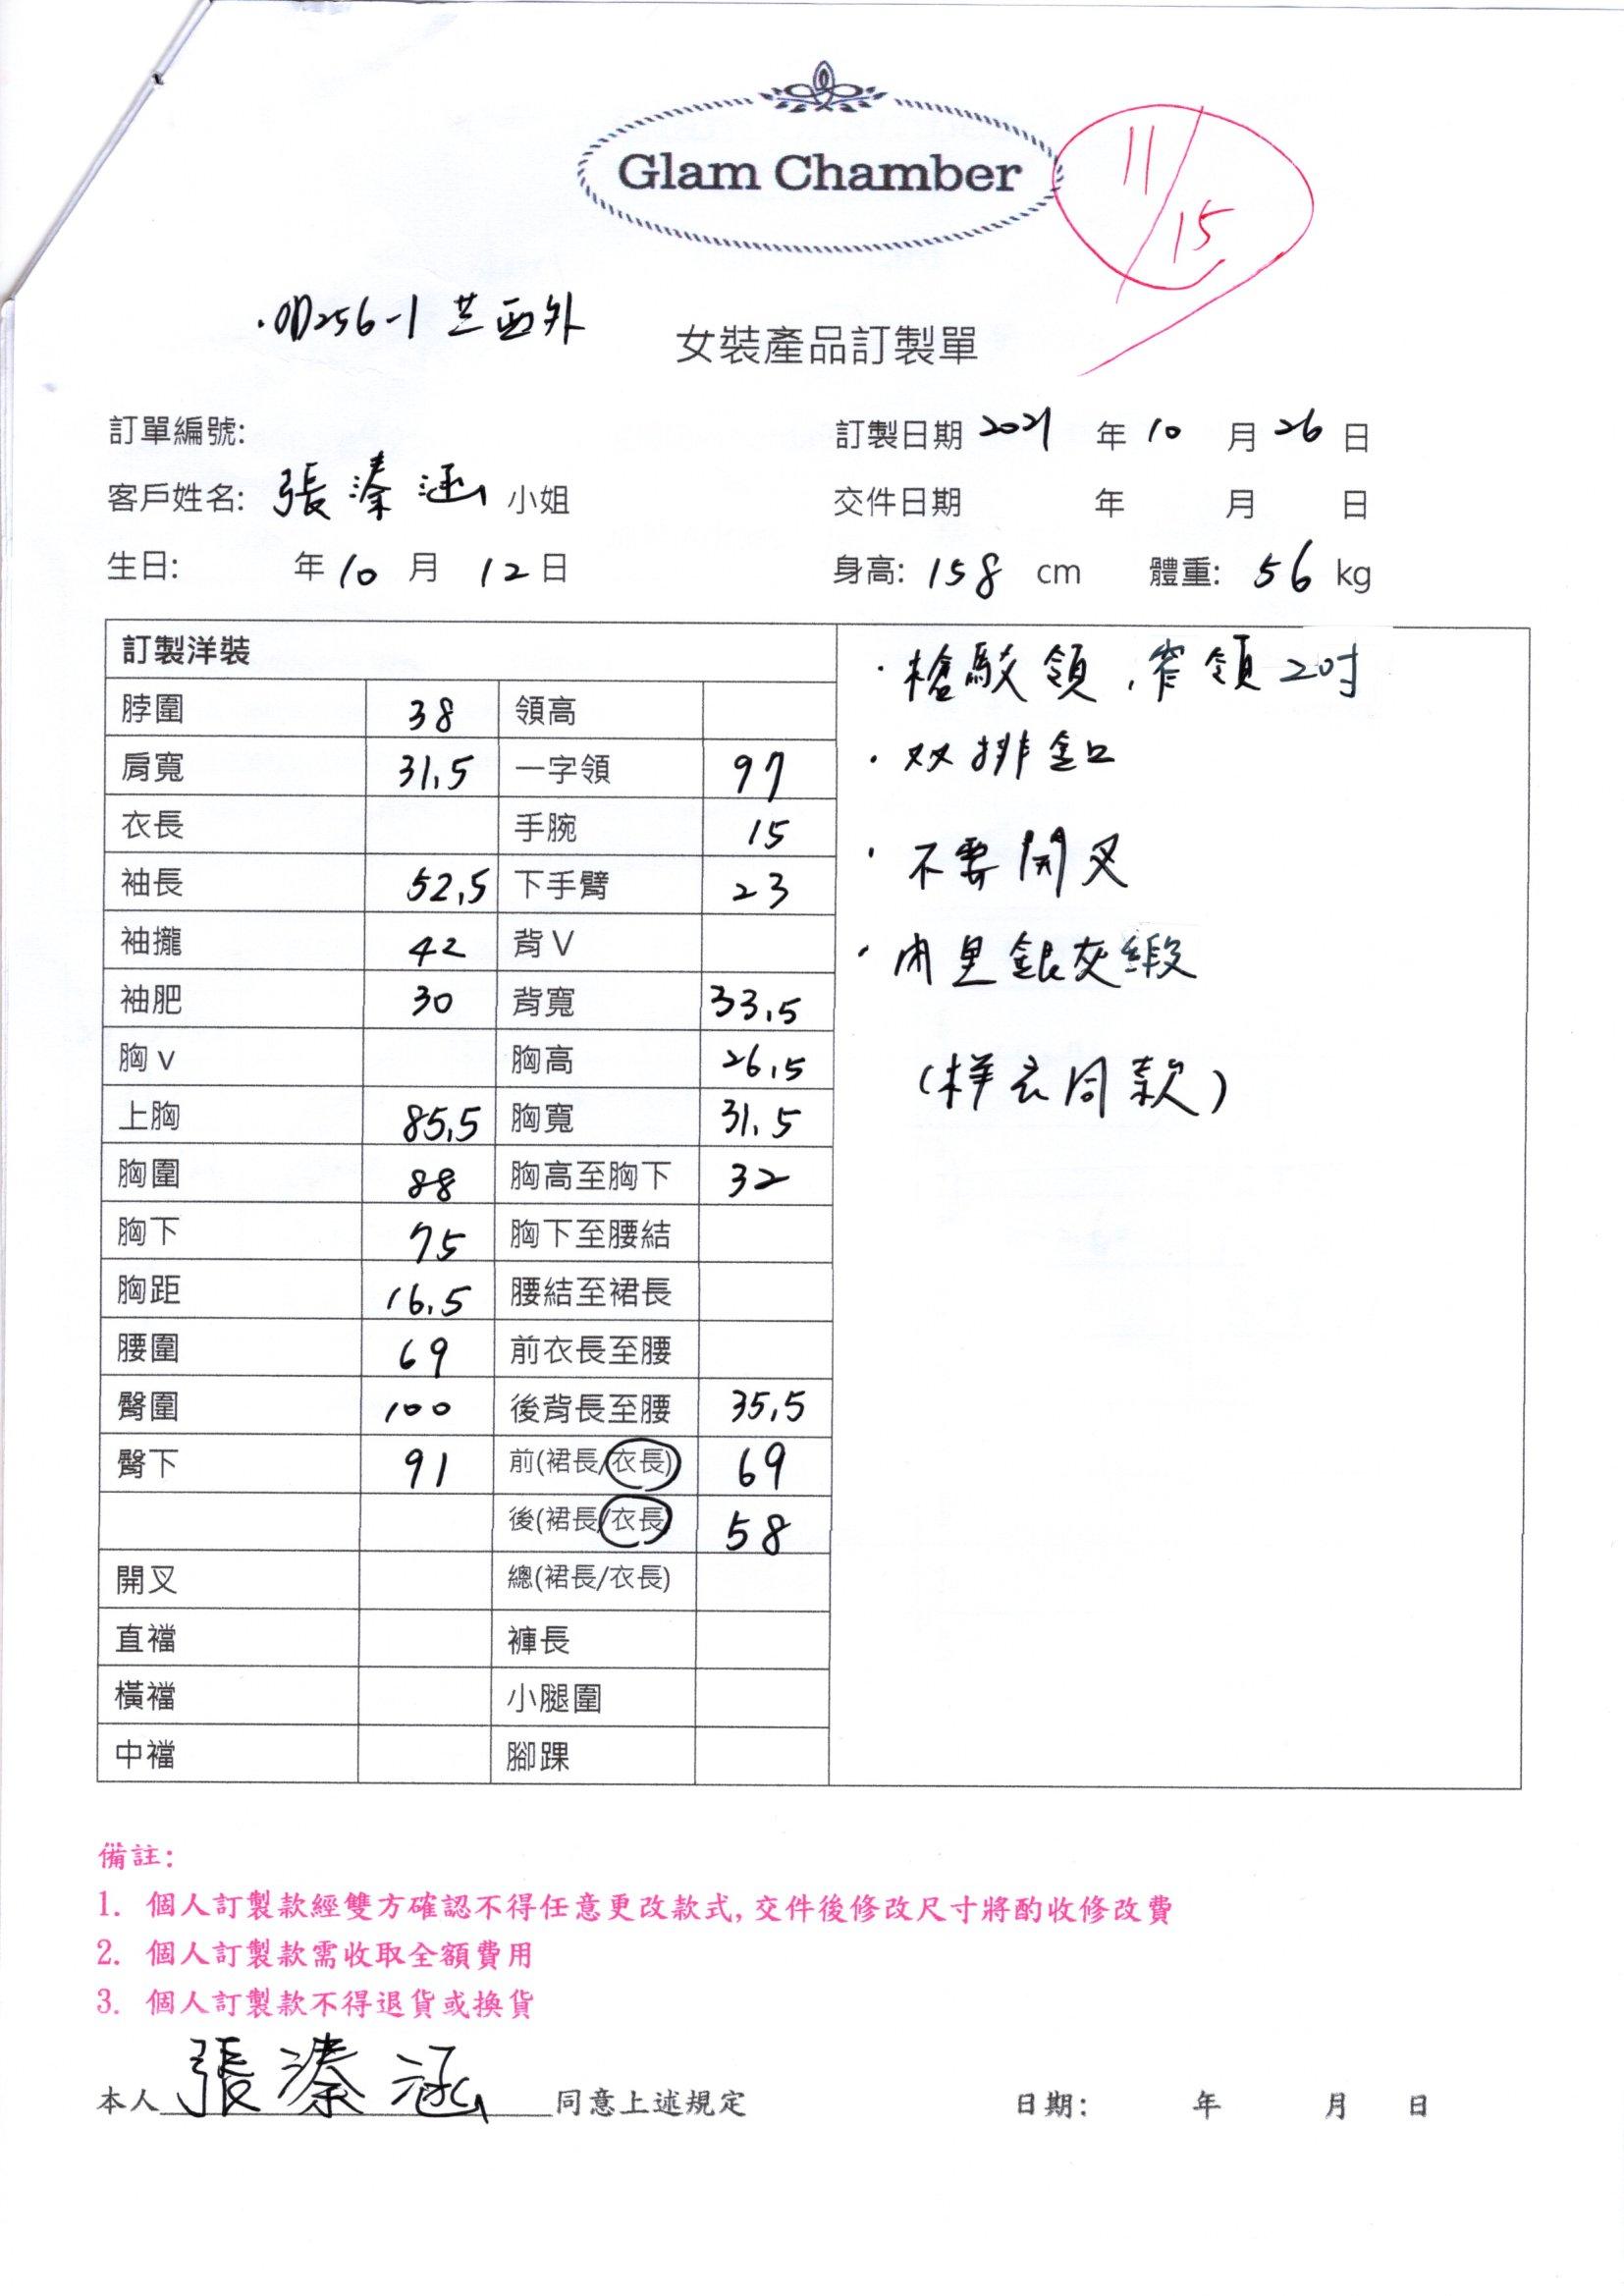 Glam Chamber
11/15
女裝產品訂製單
訂單編號:
訂製日期 2021 年 10 月 26 日
客戶姓名: 張溱涵 小姐
交件日期 年 月 日
生日: 年 10 月 12 日
身高: 158 cm 體重: 56 kg
訂製洋裝
脖圍 38 領高
肩寬 31.5 一字領 97
衣長 手腕 15
袖長 52.5 下手臂 23
袖攏 42 背V
袖肥 30 背寬 33.5
胸v 胸高 26.5
上胸 85.5 胸寬 31.5
胸圍 88 胸高至胸下 32
胸下 75 胸下至腰結
胸距 16.5 腰結至裙長
腰圍 69 前衣長至腰
臀圍 100 後背長至腰 35.5
臀下 91 前(裙長/衣長) 69
後(裙長/衣長) 58
開叉 總(裙長/衣長)
直襠 褲長
橫襠 小腿圍
中襠 腳踝
·槍駁領,窄領2吋
·双排釦
·不要開叉
·內里銀灰緞
(样衣同款)
備註:
1. 個人訂製款經雙方確認不得任意更改款式,交件後修改尺寸將酌收修改費
2. 個人訂製款需收取全額費用
3. 個人訂製款不得退貨或換貨
本人 張溱涵 同意上述規定
日期: 年 月 日